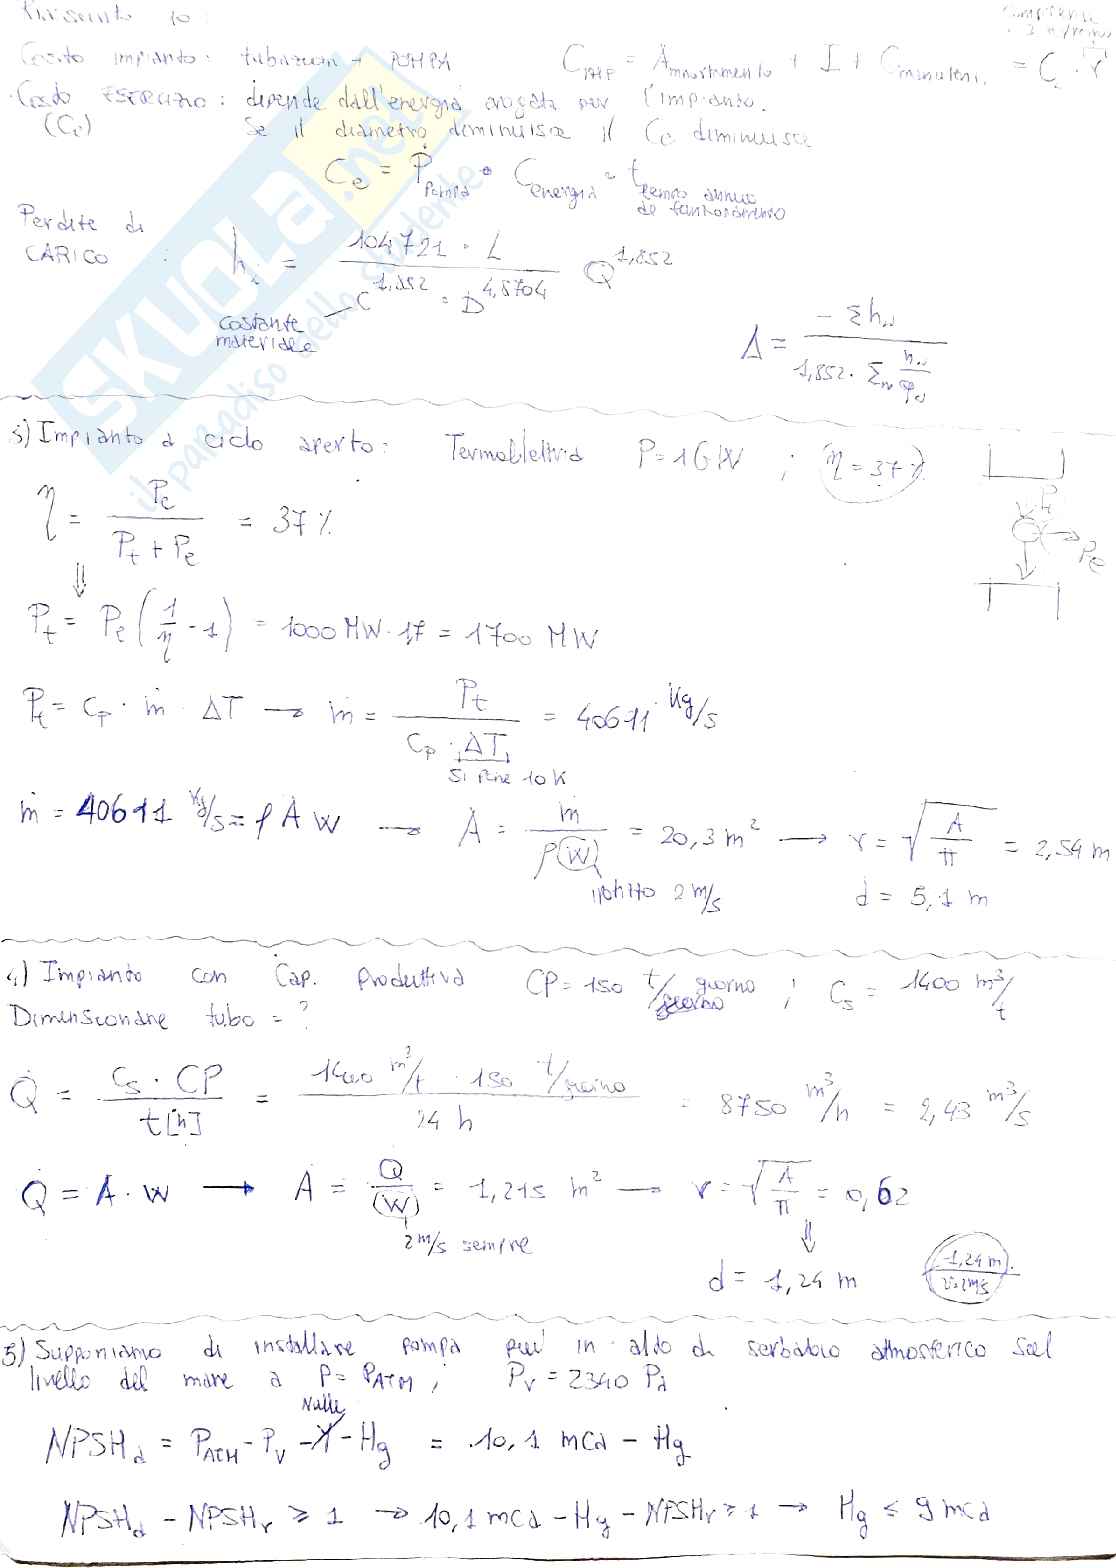 Costo impianto: tubazioni + POMPA C_IMP = Ammortamento + I + C_manuten. = C_i · r
Costo ESERCIZIO: dipende dall'energia erogata per l'impianto.
(Ce) Se il diametro diminuisce il Ce diminuisce
Ce = Ṗ_Pompa · C_energia · t_tempo annuo di funzionamento
Perdite di CARICO : h_i = 104721 · L / (C^1,852 · D^4,8704) Q^1,852
costante materiale
Δ = - Σh_i / (1,852 · Σ_n h_i/q_i)
3) Impianto a ciclo aperto: Termoelettrica P = 1 GW ; η = 37 %
η = Pe / (Pt + Pe) = 37 %
Pt
Pe
⇓
Pt = Pe (1/η - 1) = 1000 MW · 1,7 = 1700 MW
Pt = cp · ṁ · ΔT → ṁ = Pt / (cp · ΔT) = 40611 kg/s
si pone 10 K
ṁ = 40611 kg/s = ρ A w → A = ṁ / (ρ w) = 20,3 m² → r = √(A/π) = 2,54 m
ipotizzo 2 m/s d = 5,1 m
4) Impianto con Cap. Produttiva CP = 150 t/giorno ; Cs = 1400 m³/t
Dimensionare tubo = ?
Q̇ = Cs · CP / t[h] = 1400 m³/t · 150 t/giorno / 24 h = 8750 m³/h = 2,43 m³/s
Q̇ = A · w → A = Q / (w) = 1,215 m² → r = √(A/π) = 0,62
2 m/s sempre ⇓
d = 1,24 m
1,24 m
v=2m/s
5) Supponiamo di installare pompa più in alto di serbatoio atmosferico sul
livello del mare a P = P_ATM ; Pv = 2340 Pa
Nulle
NPSHd = P_ATM - Pv - Y - Hg = 10,1 mca - Hg
NPSHd - NPSHr ≥ 1 → 10,1 mca - Hg - NPSHr ≥ 1 → Hg ≤ 9 mca
SKUOLA.net
il paradiso dello studente